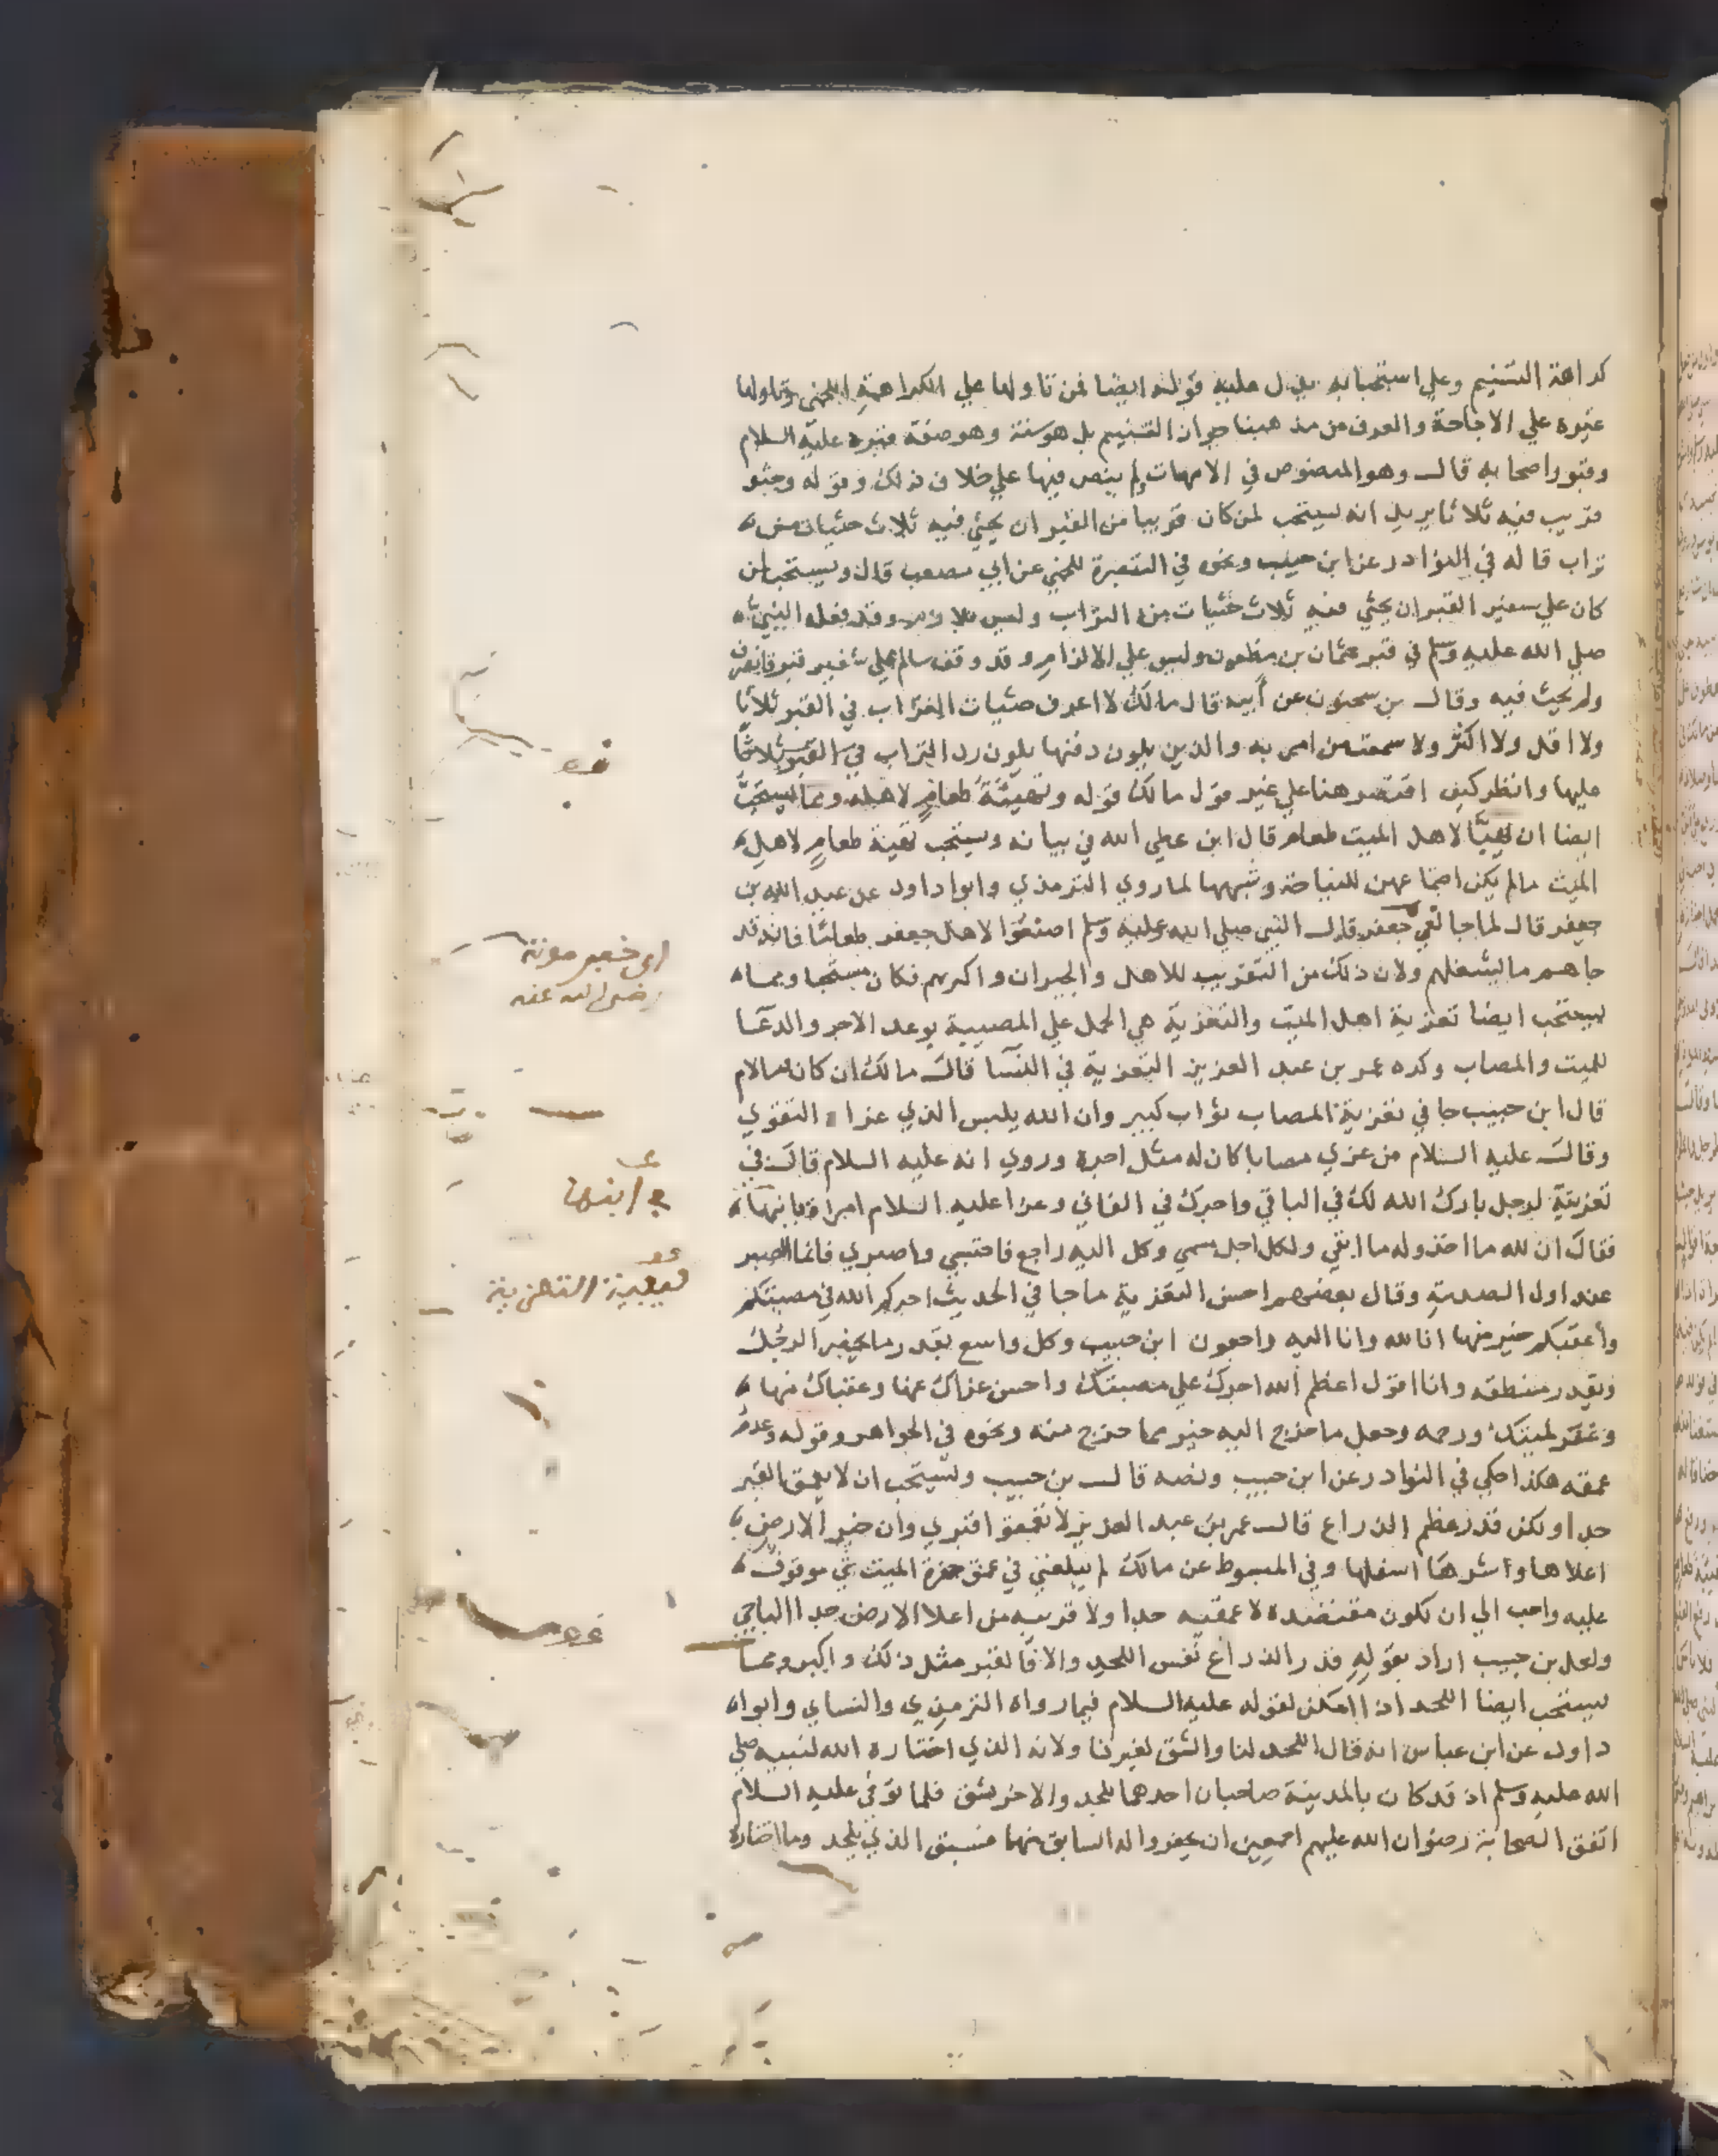 كراهة التسنيم وعلي استحبابه يدل عليه قوله ايضا فمن تاولها علي الكراهة اللخمى وتاولها
غيره علي الاباحة والمعروف من مذهبنا جواز التسنيم بل هو سنة وهو صفة قبره عليه السلام
وقبور اصحابه قال وهو المنصوص في الامهات ولم ينص فيها علي خلاف ذلك وقوله وحثو
قريب فيه ثلاثا يريد انه يستحب لمن كان قريبا من القبر ان يحثي فيه ثلاث حثيات من
تراب قاله في النوادر عن ابن حبيب ونحوه في التبصرة للخمي عن ابي مصعب قال ويستحب لمن
كان علي سفير القبر ان يحثي فيه ثلاث حثيات من التراب وليس بلازم وقد فعله النبي
صلي الله عليه وسلم في قبر عثمان بن مظعون وليس علي الالزام وقد وقف سالم علي شفير قبر فانصرف
ولم يحث فيه وقال بن سحنون عن أبيه قال مالك لا اعرف حثيات التراب في القبر ثلاثا
ولا اقل ولا اكثر ولا سمعت من امر به والذين يلون دفنها يلون رد التراب في القبر ثلاثا
عليها وانظر كيف اقتصر هنا علي غير قول مالك قوله وتهيئة طعامٍ لاهله ومما يستحب
ايضا ان يهيّا لاهل الميت طعام قال ابن عطي الله في بيانه ويستحب تهية طعامٍ لاهل
الميت مالم يكن اجتماعهن للنياحة وشبهها لما روي الترمذي وابوا داود عن عبد الله بن
جعفر قال لما جا نعي جعفر قال النبي صلي الله عليه وسلم اصنعوا لاهل جعفر طعاما فانه قد
جاهم ما يشغلهم ولان ذلك من التقريب للاهل والجيران واكرمهم فكان مستحبا ومما
يستحب ايضا تعزية اهل الميت والتعزية هي الحمل علي المصيبة بوعد الاجر والدعا
للميت والمصاب وكره عمر بن عبد العزيز التعزية في النسا قال مالك ان كان فبالام
قال ابن حبيب جا في تعزية المصاب ثواب كبير وان الله يلبس الذي عزا التقوي
وقال عليه السلام من عزي مصابا كان له مثل اجره وروي انه عليه السلام قال في
تعزية لرجل بارك الله لك في الباقي واجرك في الفاني وعزا عليه السلام امراة بابنها
فقال ان لله ما اخذ وله ما ابقي ولكل اجل مسمي وكل اليه راجع فاحتسبي واصبري فانما الصبر
عند اول الصدمة وقال بعضهم احسن التعزية ما جا في الحديث اجركم الله في مصيبتكم
وأعقبكم خير منها انا لله وانا اليه راجعون ابن حبيب وكل واسع بقدر ما يحضر الرجل
وبقدر منطقه وانا اقول اعظم الله اجرك علي مصيبتك واحسن عزاك عنها وعقباك منها
وغفر لميتك ورحمه وجعل ما خرج اليه خير مما خرج منه ونحوه في الجواهر وقوله وعدم
عمقه هكذا حكي في النوادر عن ابن حبيب ونصه قال بن حبيب ويستحب ان لا يعمق القبر
جدا ولكن قدر عظم الذراع قال عمر بن عبد العزيز لا تعمقوا قبري وان خير الارض
اعلاها واشرها اسفلها وفي المبسوط عن مالك لم يبلغني في عمق حفرة الميت شي موقوف
عليه واحب الي ان تكون مقتصدة لا عمقيه جدا ولا قريبه من اعلا الارض جدا الباجي
ولعل بن حبيب اراد بقوله قدر الذراع نفس اللحد والا فالقبر مثل ذلك واكبر ومما
يستحب ايضا اللحد اذا امكن لقوله عليه السلام فيما رواه الترمذي والنساي وابوا
داود عن ابن عباس انه قال اللحد لنا والشق لغيرنا ولانه الذي اختاره الله لنبيه صلي
الله عليه وسلم اذ قد كان بالمدينة صاحبان احدهما يلحد والاخر يشق فلما توفي عليه السلام
اتفق الصحابة رضوان الله عليهم اجمعين ان يحفروا له السابق منهما فسبق الذي يلحد وما اختاره
اي خبر موته
رضي الله عنه
في ابنها
التعزية